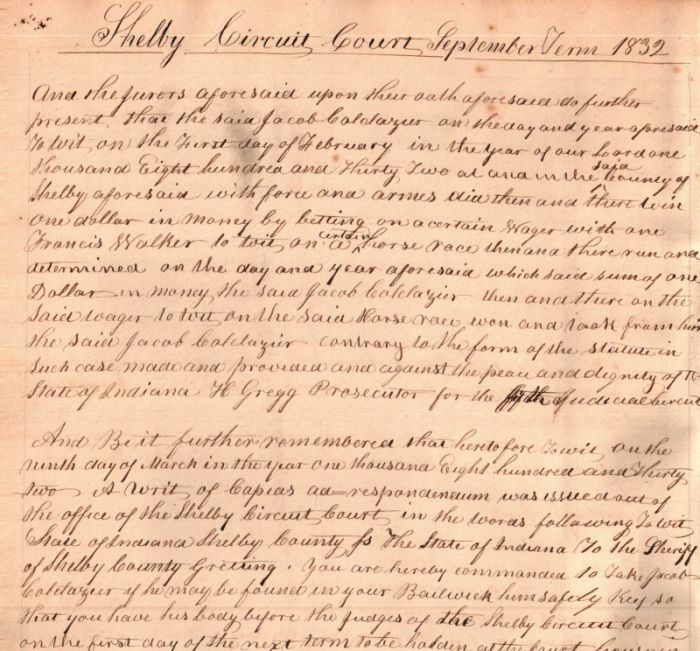 Shelby Circuit Court September Term 1832
And the jurors aforesaid upon their oath aforesaid do further
present that the said Jacob Colclazier on the day and year aforesaid
To wit, on the First day of February in the year of our Lord one
thousand Eight hundred and Thirty Two at and in the said County of
Shelby aforesaid with force and armes did then and there win
one dollar in money by betting on a certain Wager with one
Francis Walker to wit, on a certain horse race then and there run and
determined on the day and year aforesaid which said sum of one
Dollar in money the said Jacob Colclazier then and there on the
said wager to wit on the said Horse race won and took from him
the said Jacob Colclazier contrary to the form of the statute in
such case made and provided and against the peace and dignity of
State of Indiana H Gregg Prosecutor for the fifth Judicial Circuit
And Be it further remembered that heretofore To wit, on the
ninth day of March in the year one thousand Eight hundred and Thirty
two A Writ of Capias ad=respondendum was issued out of
the office of the Shelby Circuit Court in the words following To wit
State of Indiana Shelby County ss The State of Indiana To the Sheriff
of Shelby County Greeting. You are hereby commanded to Take Jacob
Colclazier if he may be found in your Bailwick him safely Key so
that you have his body before the Judges of the Shelby Circuit Court
on the first day of the next term to be holden at the Court